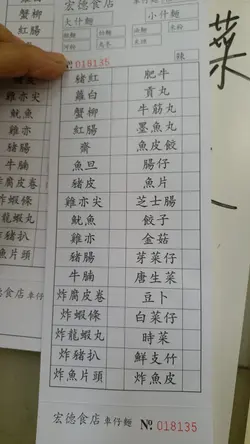 宏德食店
大什麵
小什麵
張
№ 018135
豬紅 肥牛
蘿白 貢丸
蟹柳 牛筋丸
紅腸 墨魚丸
齋 魚皮餃
魚旦 腸仔
豬皮 魚片
雞亦尖 芝士腸
魷魚 餃子
雞亦 金菇
豬腸 芽菜仔
牛腩 唐生菜
炸腐皮卷 豆卜
炸蝦條 白菜仔
炸龍蝦丸 時菜
炸豬扒 鮮支竹
炸魚片頭 炸魚皮
宏德食店 車仔麵 № 018135
蟹柳
紅腸
齋
魚旦
豬皮
雞亦尖
魷魚
雞亦
豬腸
牛腩
炸腐皮卷
炸蝦條
炸龍蝦丸
炸豬扒
魚片頭
菜